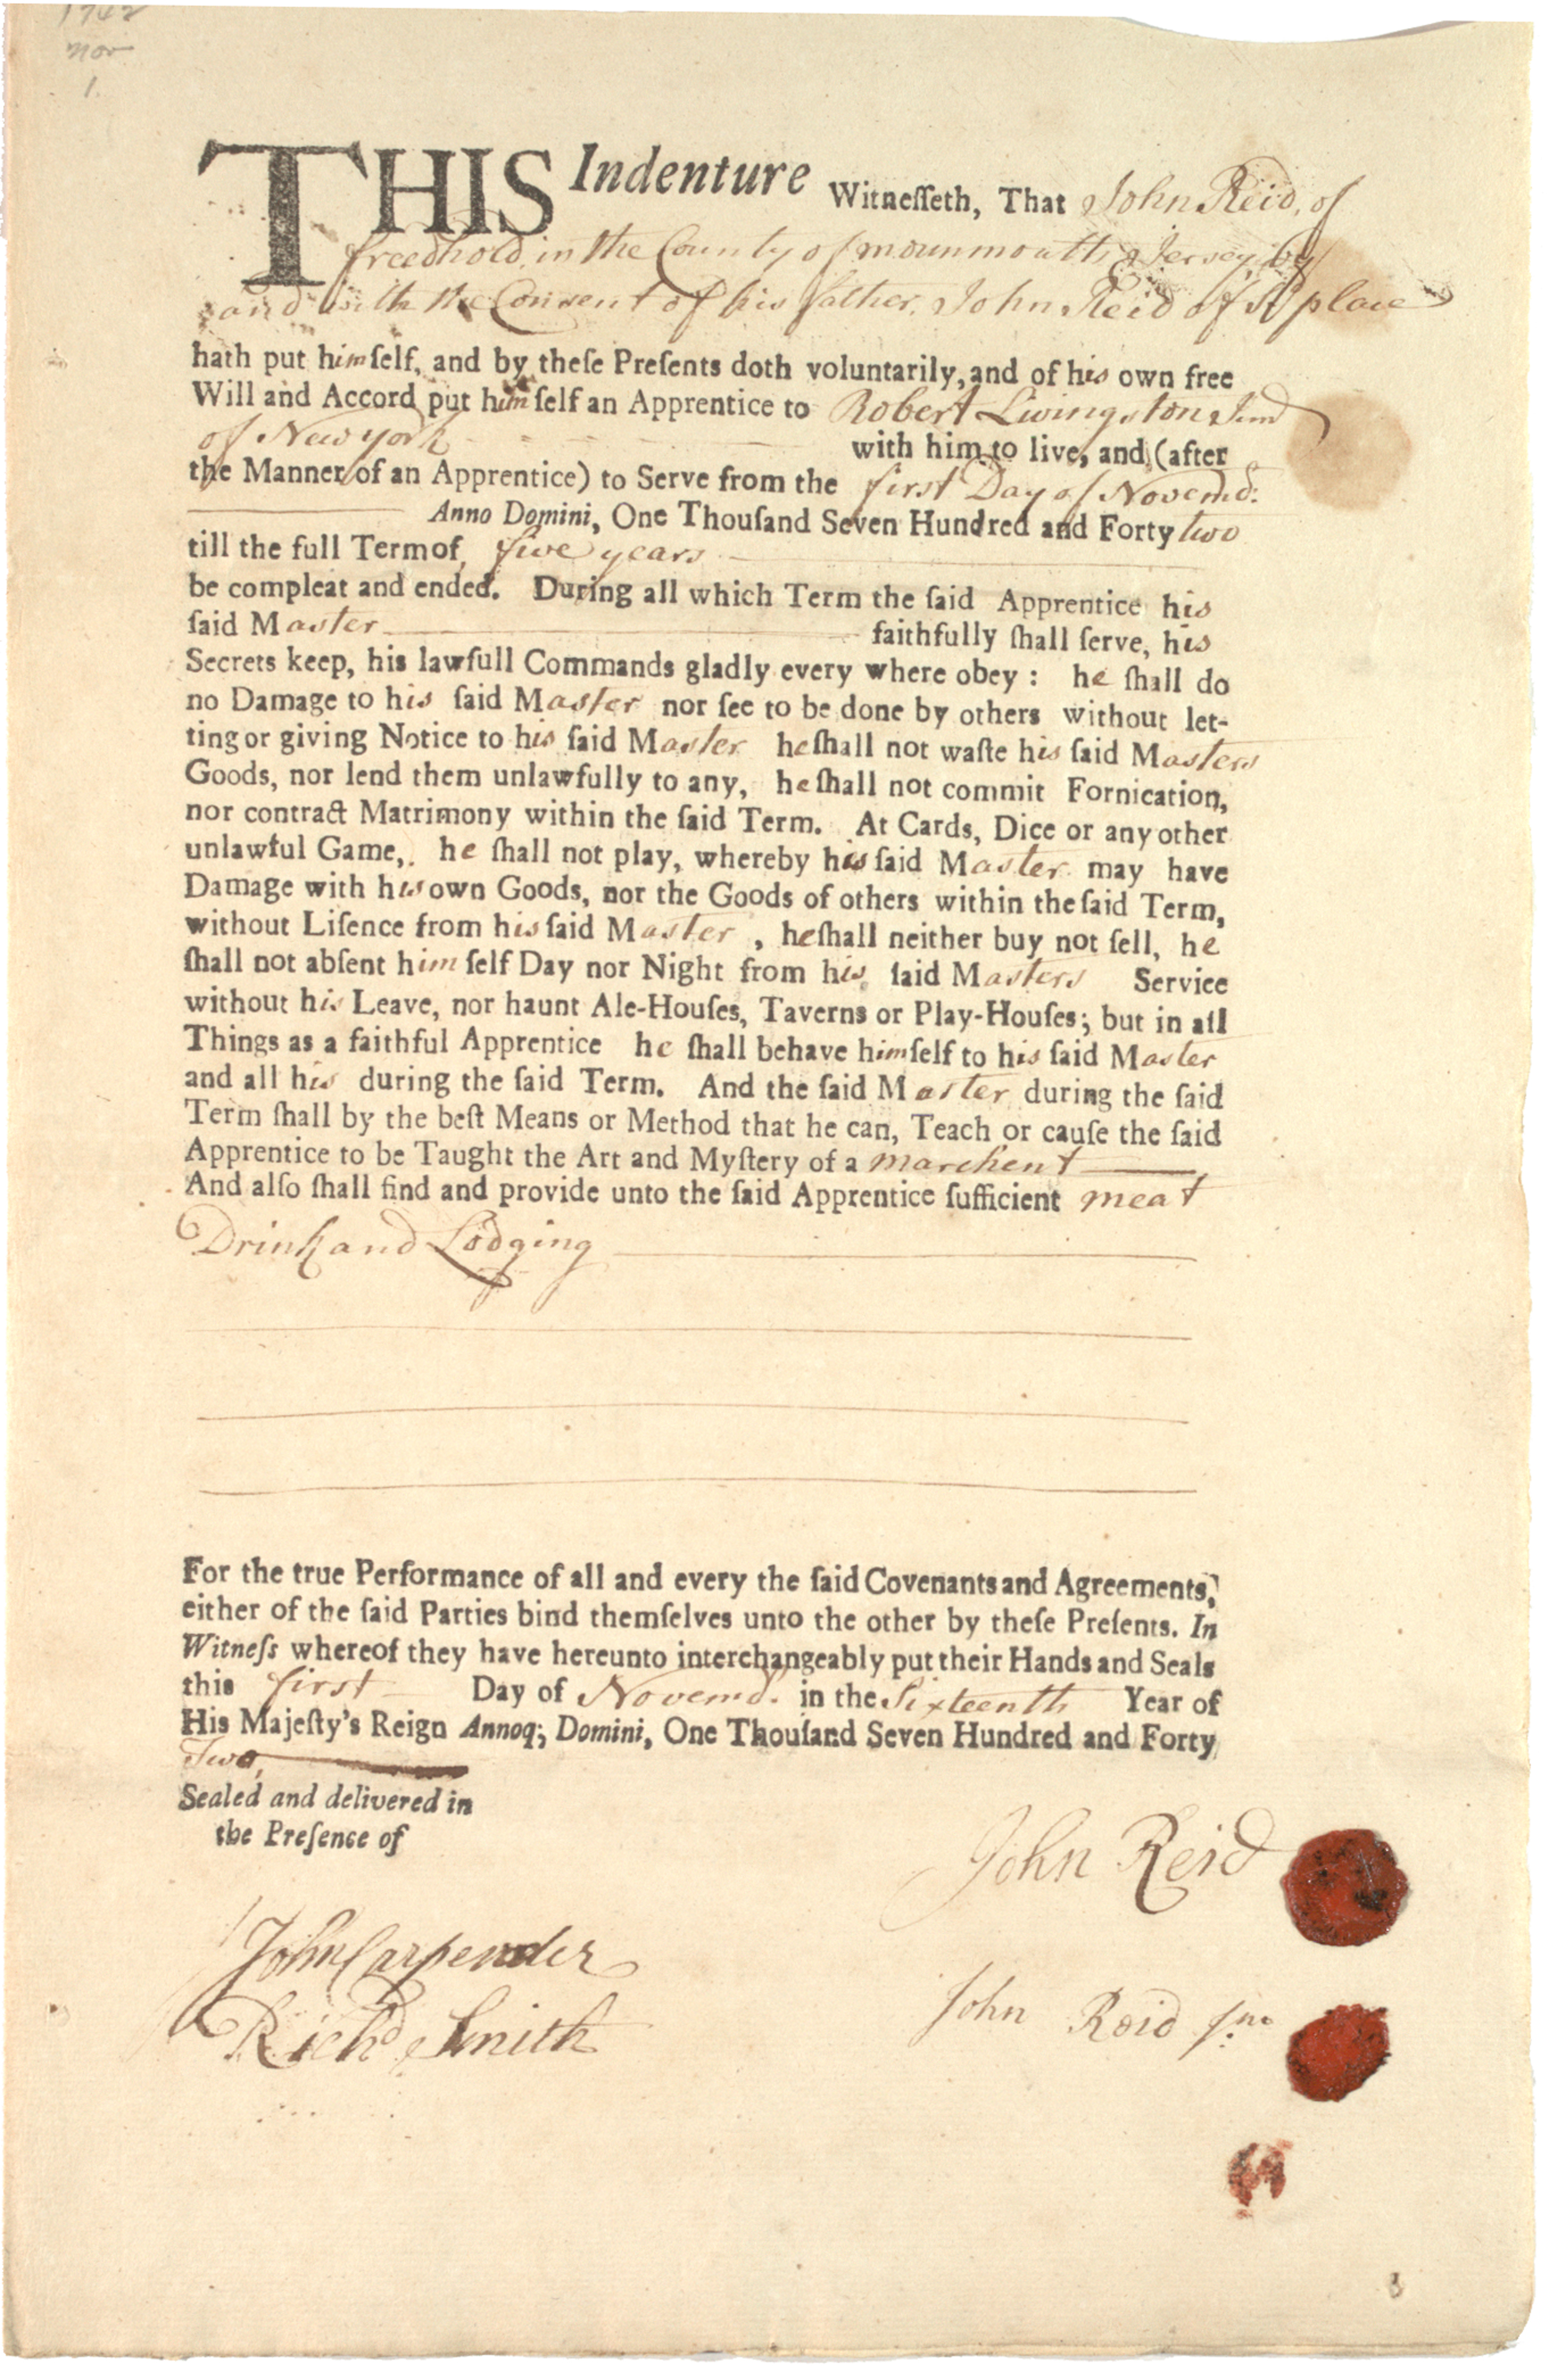 1742
nov
1
THIS Indenture Witneſſeth, That John Reid, of
freedhold, in the County of mounmouth, Jersey, by
and with the Consent of his father, John Reid of sd place
hath put himſelf, and by theſe Preſents doth voluntarily, and of his own free
Will and Accord put himſelf an Apprentice to Robert Livingston Junr
of New york with him to live, and (after
the Manner of an Apprentice) to Serve from the first Day of Novembr:
Anno Domini, One Thouſand Seven Hundred and Forty two
till the full Term of five years
be compleat and ended. During all which Term the ſaid Apprentice his
ſaid Master faithfully ſhall ſerve, his
Secrets keep, his lawfull Commands gladly every where obey: he ſhall do
no Damage to his ſaid Master nor ſee to be done by others without let-
ting or giving Notice to his ſaid Master he ſhall not waſte his ſaid Masters
Goods, nor lend them unlawfully to any, he ſhall not commit Fornication,
nor contract Matrimony within the ſaid Term. At Cards, Dice or any other
unlawful Game, he ſhall not play, whereby his ſaid Master may have
Damage with his own Goods, nor the Goods of others within the ſaid Term,
without Liſence from his ſaid Master, he ſhall neither buy not ſell, he
ſhall not abſent himſelf Day nor Night from his ſaid Masters Service
without his Leave, nor haunt Ale-Houſes, Taverns or Play-Houſes; but in all
Things as a faithful Apprentice he ſhall behave himſelf to his ſaid Master
and all his during the ſaid Term. And the ſaid Master during the ſaid
Term ſhall by the beſt Means or Method that he can, Teach or cauſe the ſaid
Apprentice to be Taught the Art and Myſtery of a marchent
And alſo ſhall find and provide unto the ſaid Apprentice ſufficient meat
Drink and Lodging
For the true Performance of all and every the ſaid Covenants and Agreements,
either of the ſaid Parties bind themſelves unto the other by theſe Preſents. In
Witneſs whereof they have hereunto interchangeably put their Hands and Seals
this first Day of Novembr. in the Sixteenth Year of
His Majeſty's Reign Annoq; Domini, One Thouſand Seven Hundred and Forty
Two,
Sealed and delivered in
the Preſence of
John Reid
John Carpender
John Reid jnr
Richd Smith